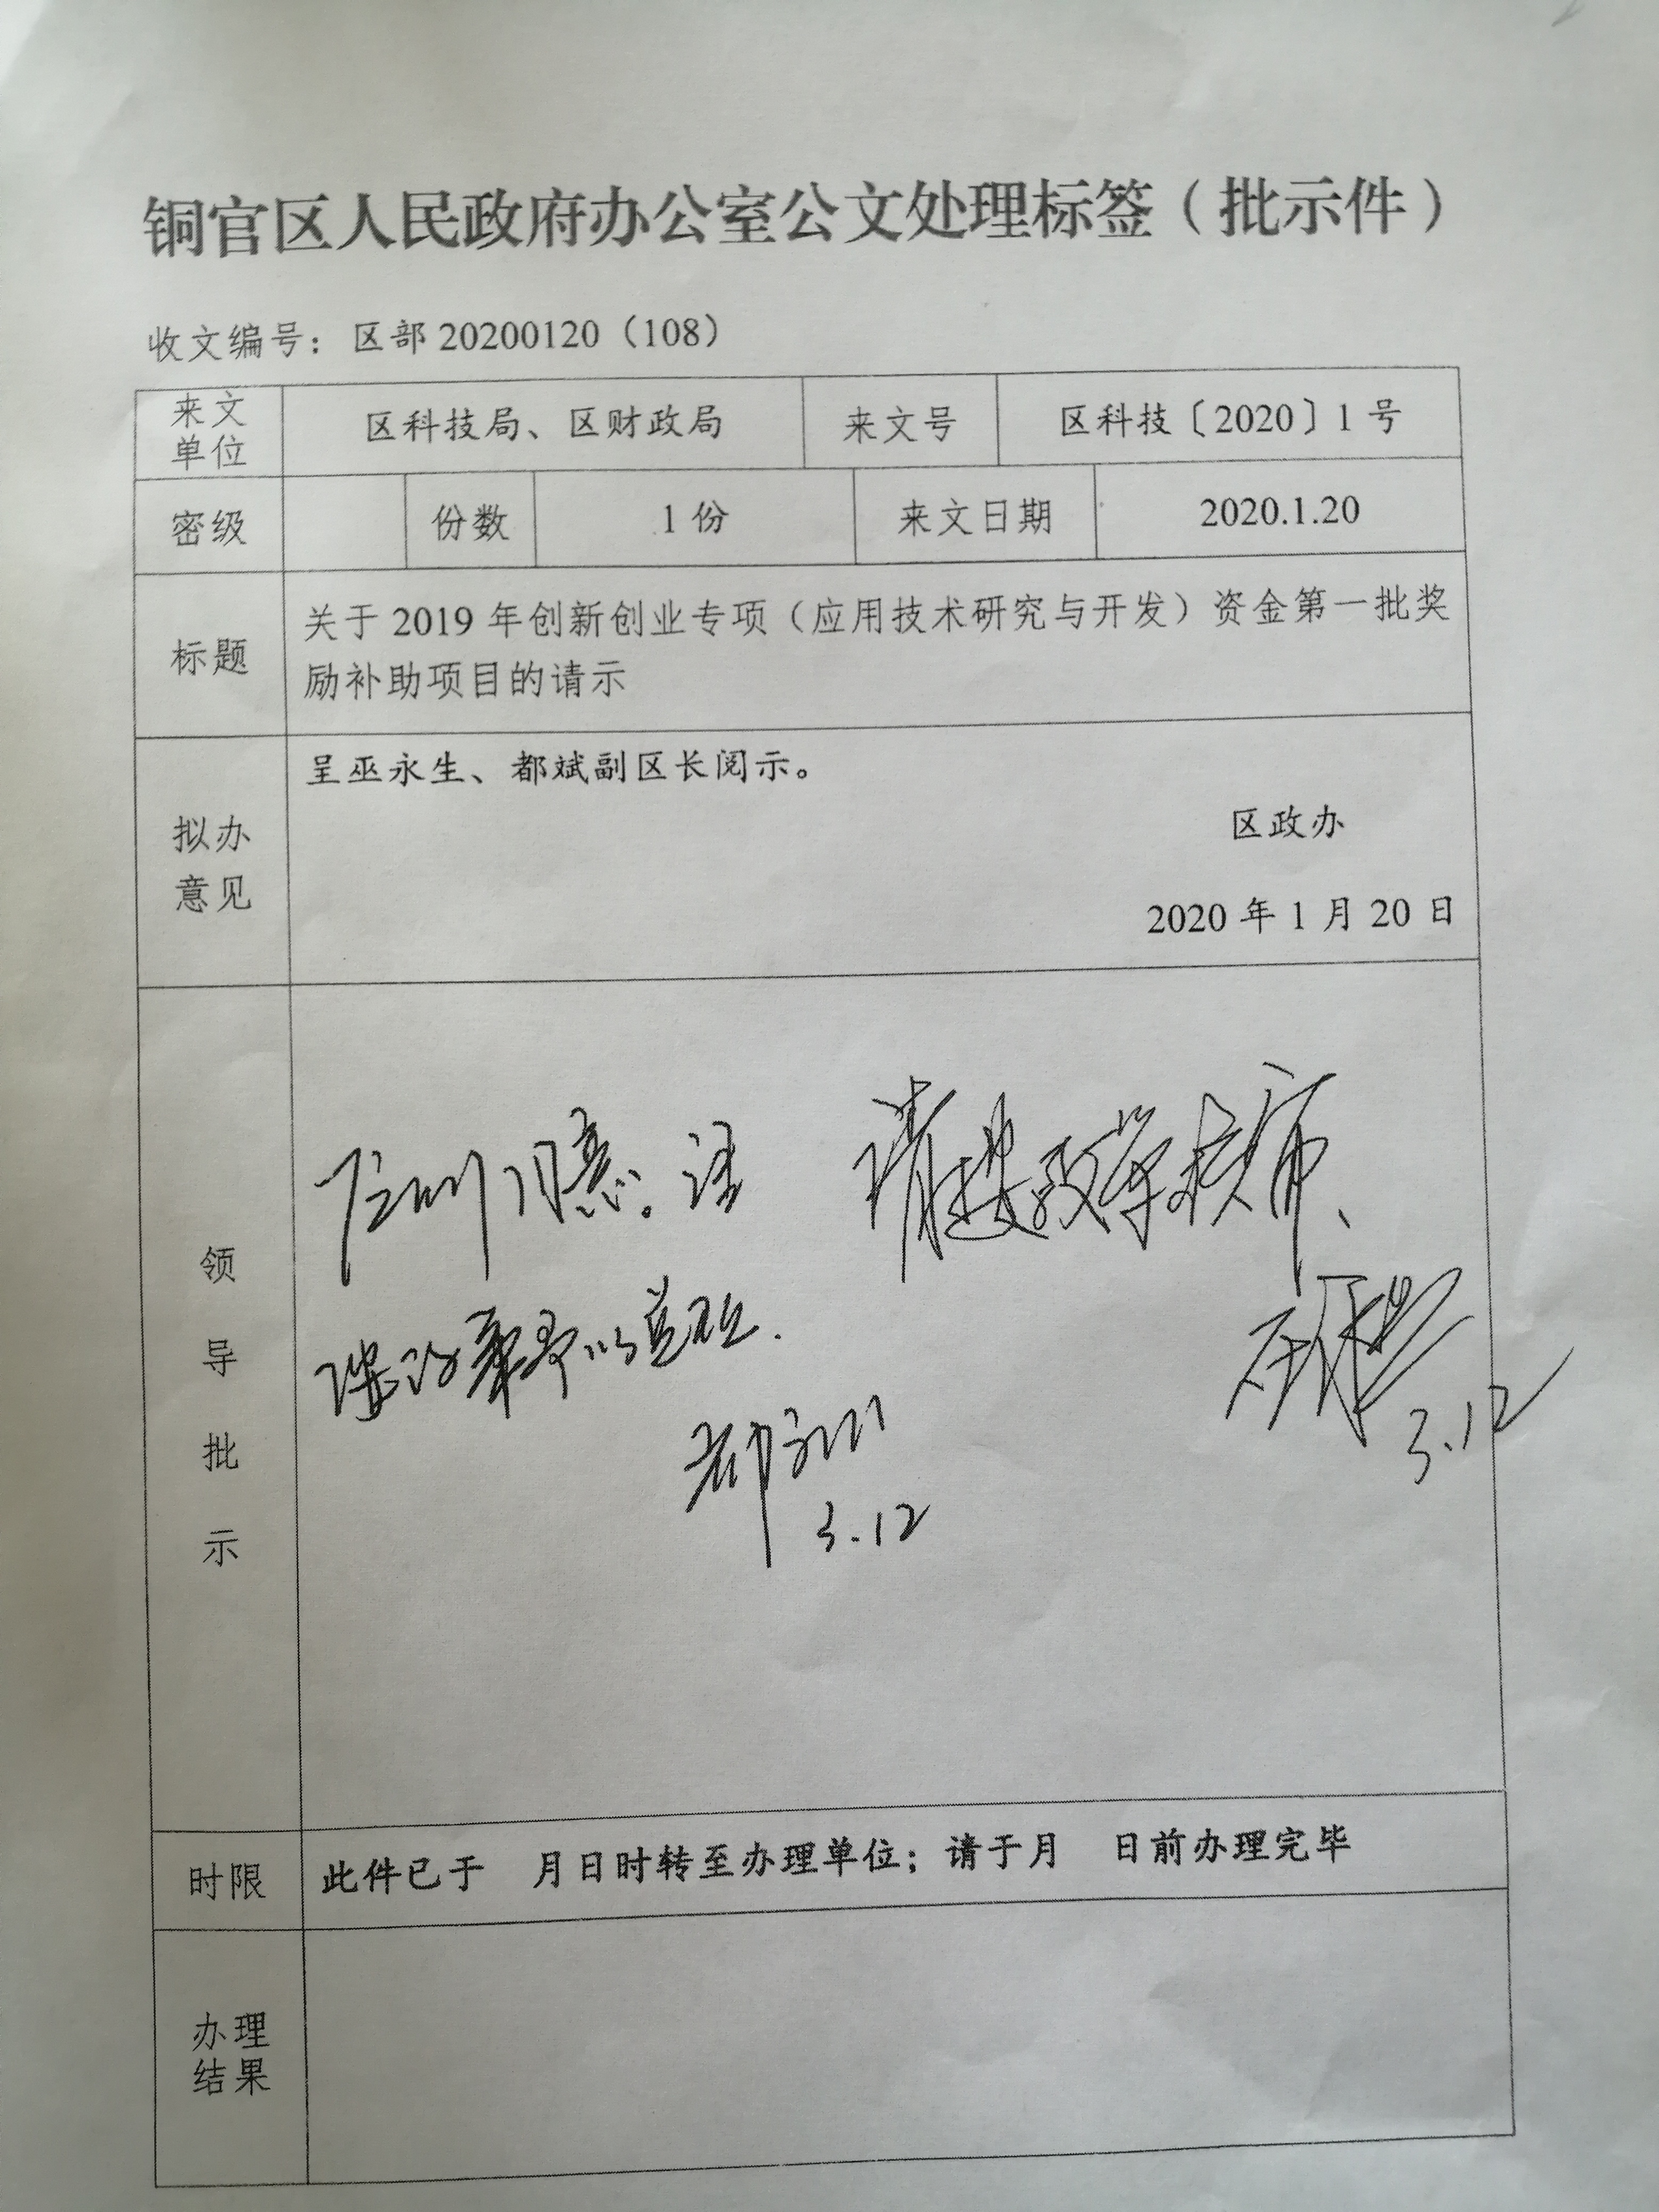 铜官区人民政府办公室公文处理标签（批示件）
收文编号：区部 20200120（108）
来文单位 区科技局、区财政局 来文号 区科技〔2020〕1 号
密级 份数 1 份 来文日期 2020.1.20
标题 关于 2019 年创新创业专项（应用技术研究与开发）资金第一批奖
励补助项目的请示
拟办意见 呈巫永生、都斌副区长阅示。
区政办
2020 年 1 月 20 日
领导批示
请按政策核审、
3.12
都斌
3.12
时限 此件已于 月日时转至办理单位；请于月 日前办理完毕
办理结果